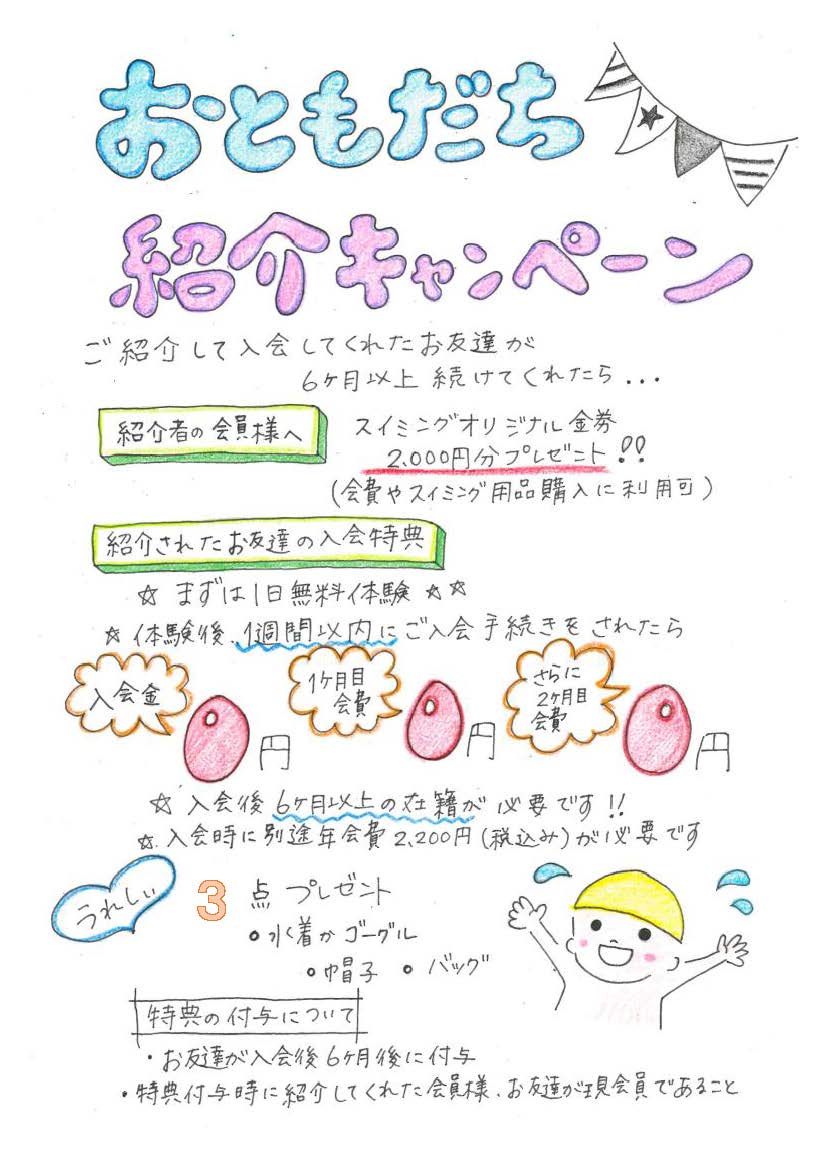 おともだち
紹介キャンペーン
ご紹介して入会してくれたお友達が
6ヶ月以上続けてくれたら...
紹介者の会員様へ
スイミングオリジナル金券
2,000円分プレゼント!!
(会費やスイミング用品購入に利用可)
紹介されたお友達の入会特典
☆ まずは1日無料体験 ☆☆
☆ 体験後、1週間以内にご入会手続きをされたら
入会金
0円
1ヶ月目
会費
0円
さらに
2ヶ月目
会費
0円
☆ 入会後6ヶ月以上の在籍が必要です!!
☆ 入会時に別途年会費2,200円(税込み)が必要です
うれしい
3点プレゼント
●水着かゴーグル
●帽子 ●バッグ
特典の付与について
・お友達が入会後6ヶ月後に付与
・特典付与時に紹介してくれた会員様、お友達が現会員であること